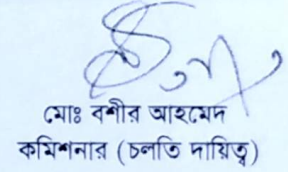 মোঃ বশীর আহমেদ
কমিশনার (চলতি দায়িত্ব)